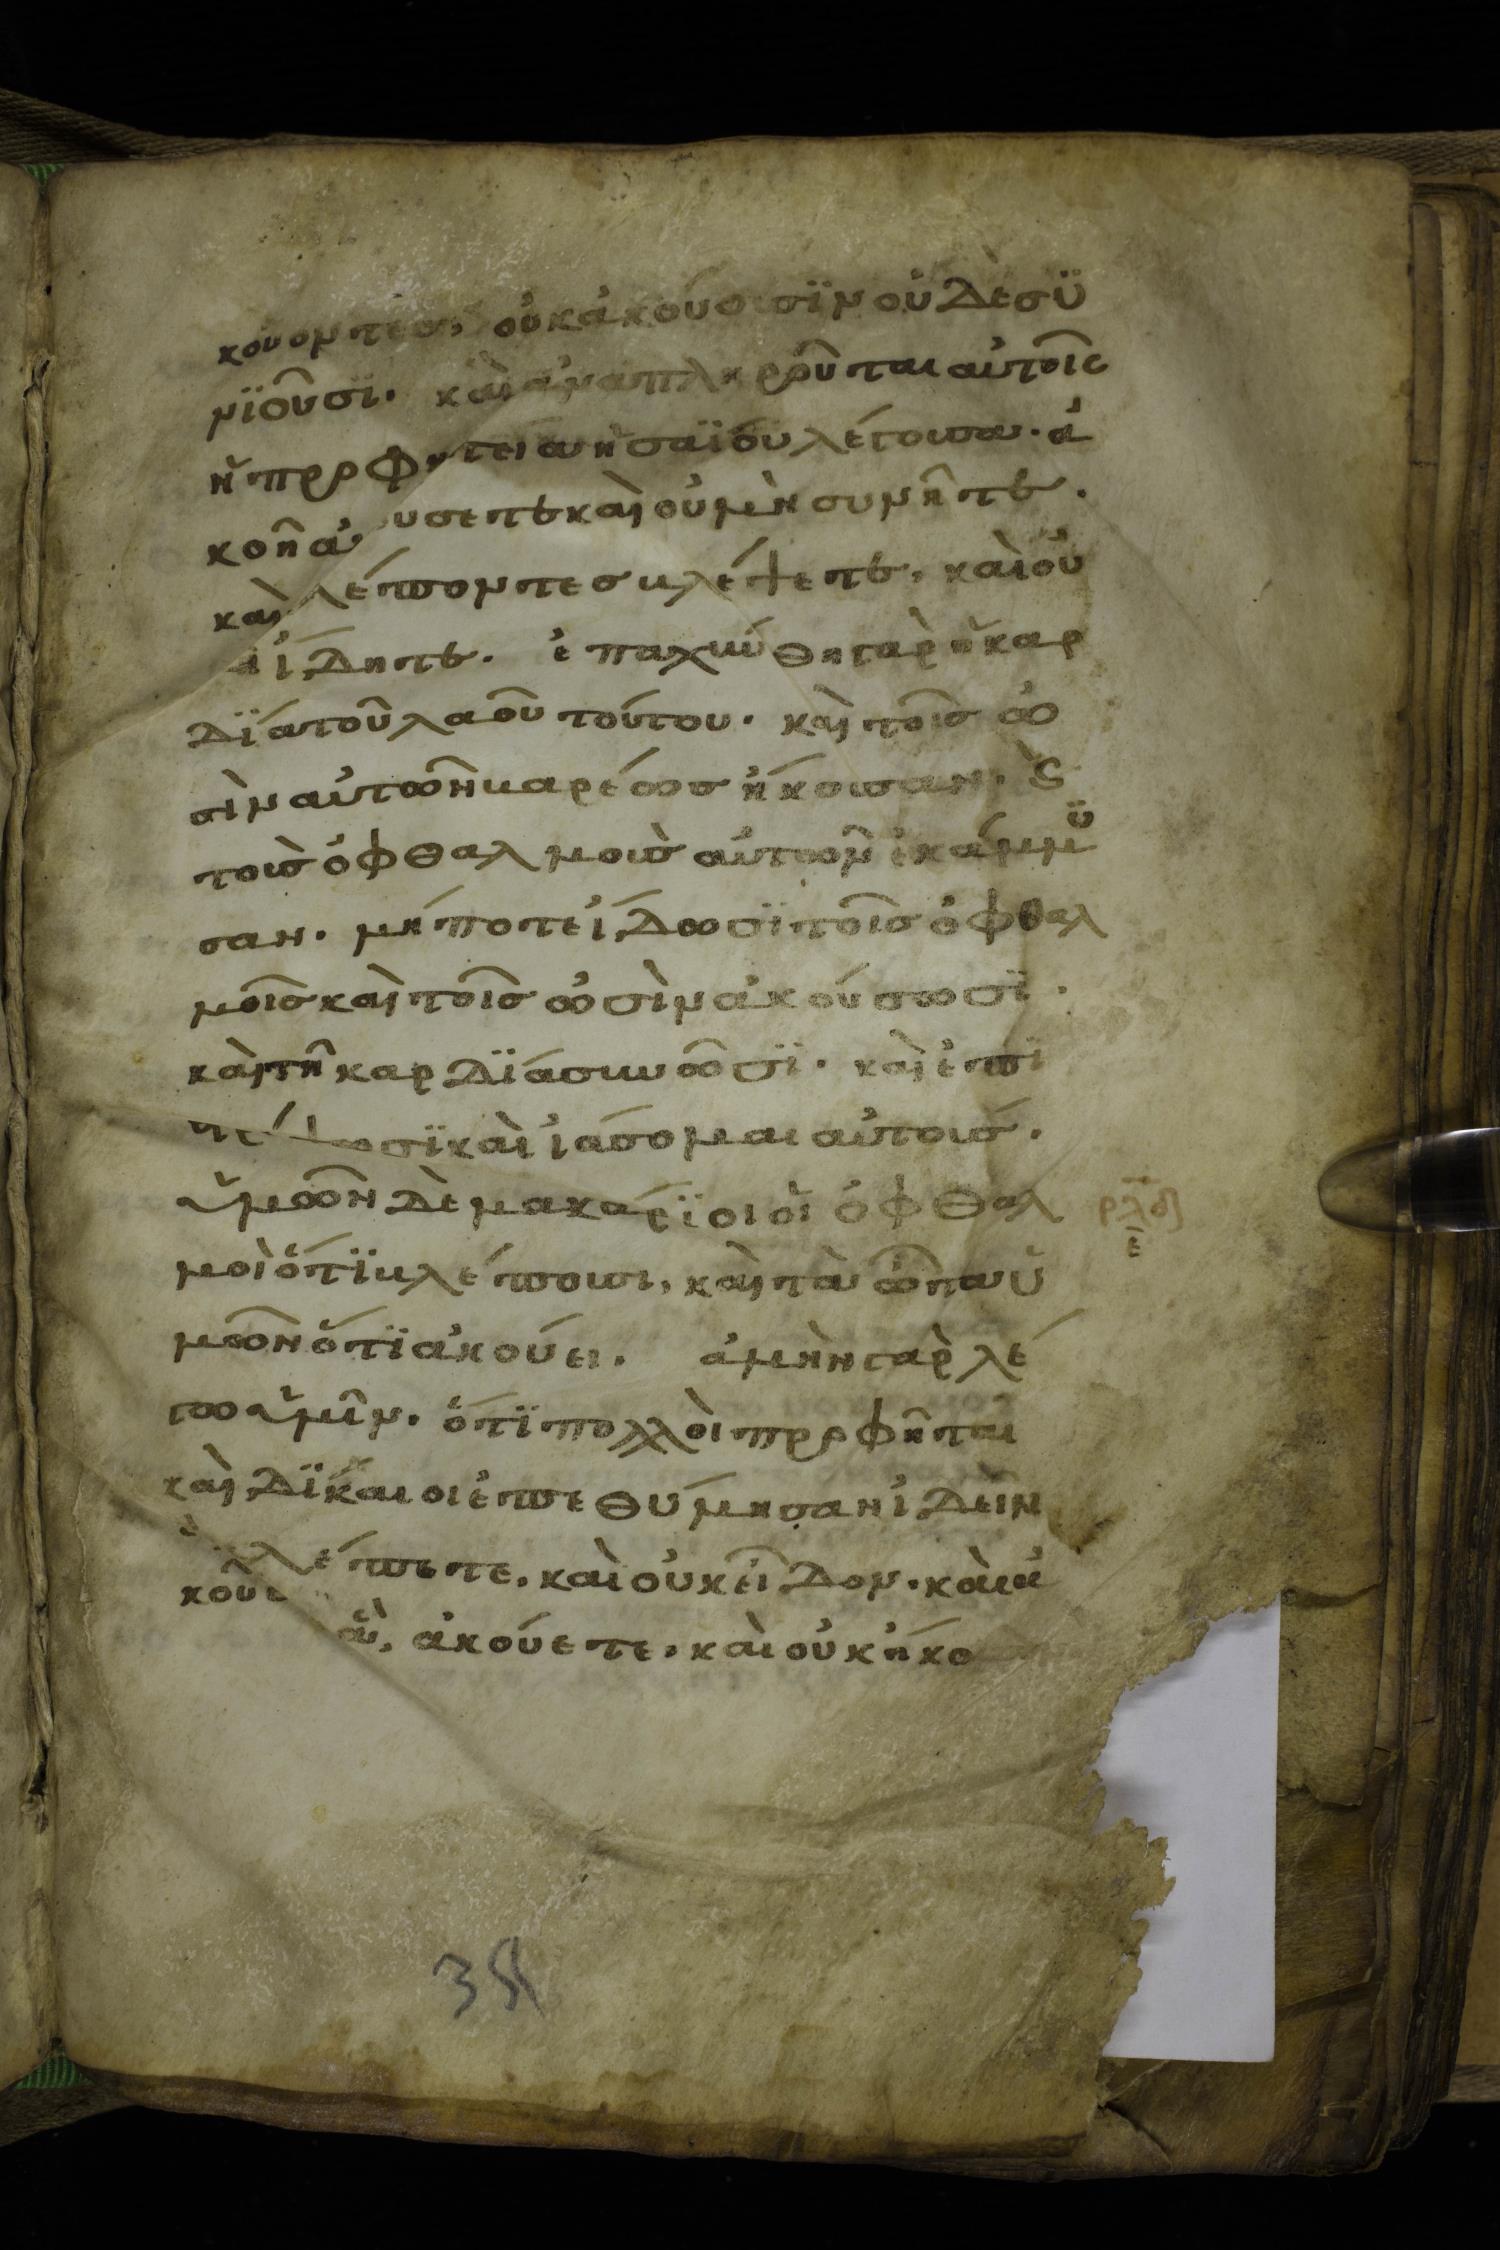 κούοντες, οὐκ ἀκούουσϊν οὐδὲ συ
νϊοῦσϊ. καὶ ἀναπληροῦται αὐτοῖς
ἡ προφητεία ἡσαΐου λέγουσα. ἀ
κοῇ ἀκούσετε καὶ οὐ μὴ συνῆτε.
καὶ βλέποντες βλέψετε, καὶ οὐ
μὴ ἴδητε. ἐπαχύνθη γὰρ ἡ καρ
δΐα τοῦ λαοῦ τούτου. καὶ τοῖς ὠ
σὶν αὐτῶν βαρέως ἤκουσαν. ϗ
τοὺς ὀφθαλμοὺς αὐτῶν ἐκάμμϋ
σαν. μήποτε ἴδωσϊ τοῖς ὀφθαλ
μοῖς καὶ τοῖς ὠσὶν ἀκούσωσϊ.
καὶ τῇ καρδΐα συνῶσϊ. καὶ ἐπϊ
στρέψωσϊ καὶ ἰάσομαι αὐτούς.
ὑμῶν δὲ μακάρϊοι οἱ ὀφθαλ
μοὶ ὅτϊ βλέπουσι, καὶ τὰ ὦτα ὑ
μῶν ὅτϊ ἀκούει. ἀμὴν γὰρ λέ
γω ὑμῖν. ὅτϊ πολλοὶ προφῆται
καὶ δΐκαιοι ἐπεθύμησαν ἰδεῖν
ἃ βλέπετε, καὶ οὐκ εἶδον. καὶ ἀ
κοῦσαι ἃ, ἀκούετε, καὶ οὐκ ἤκου
ρλδ
ε
38